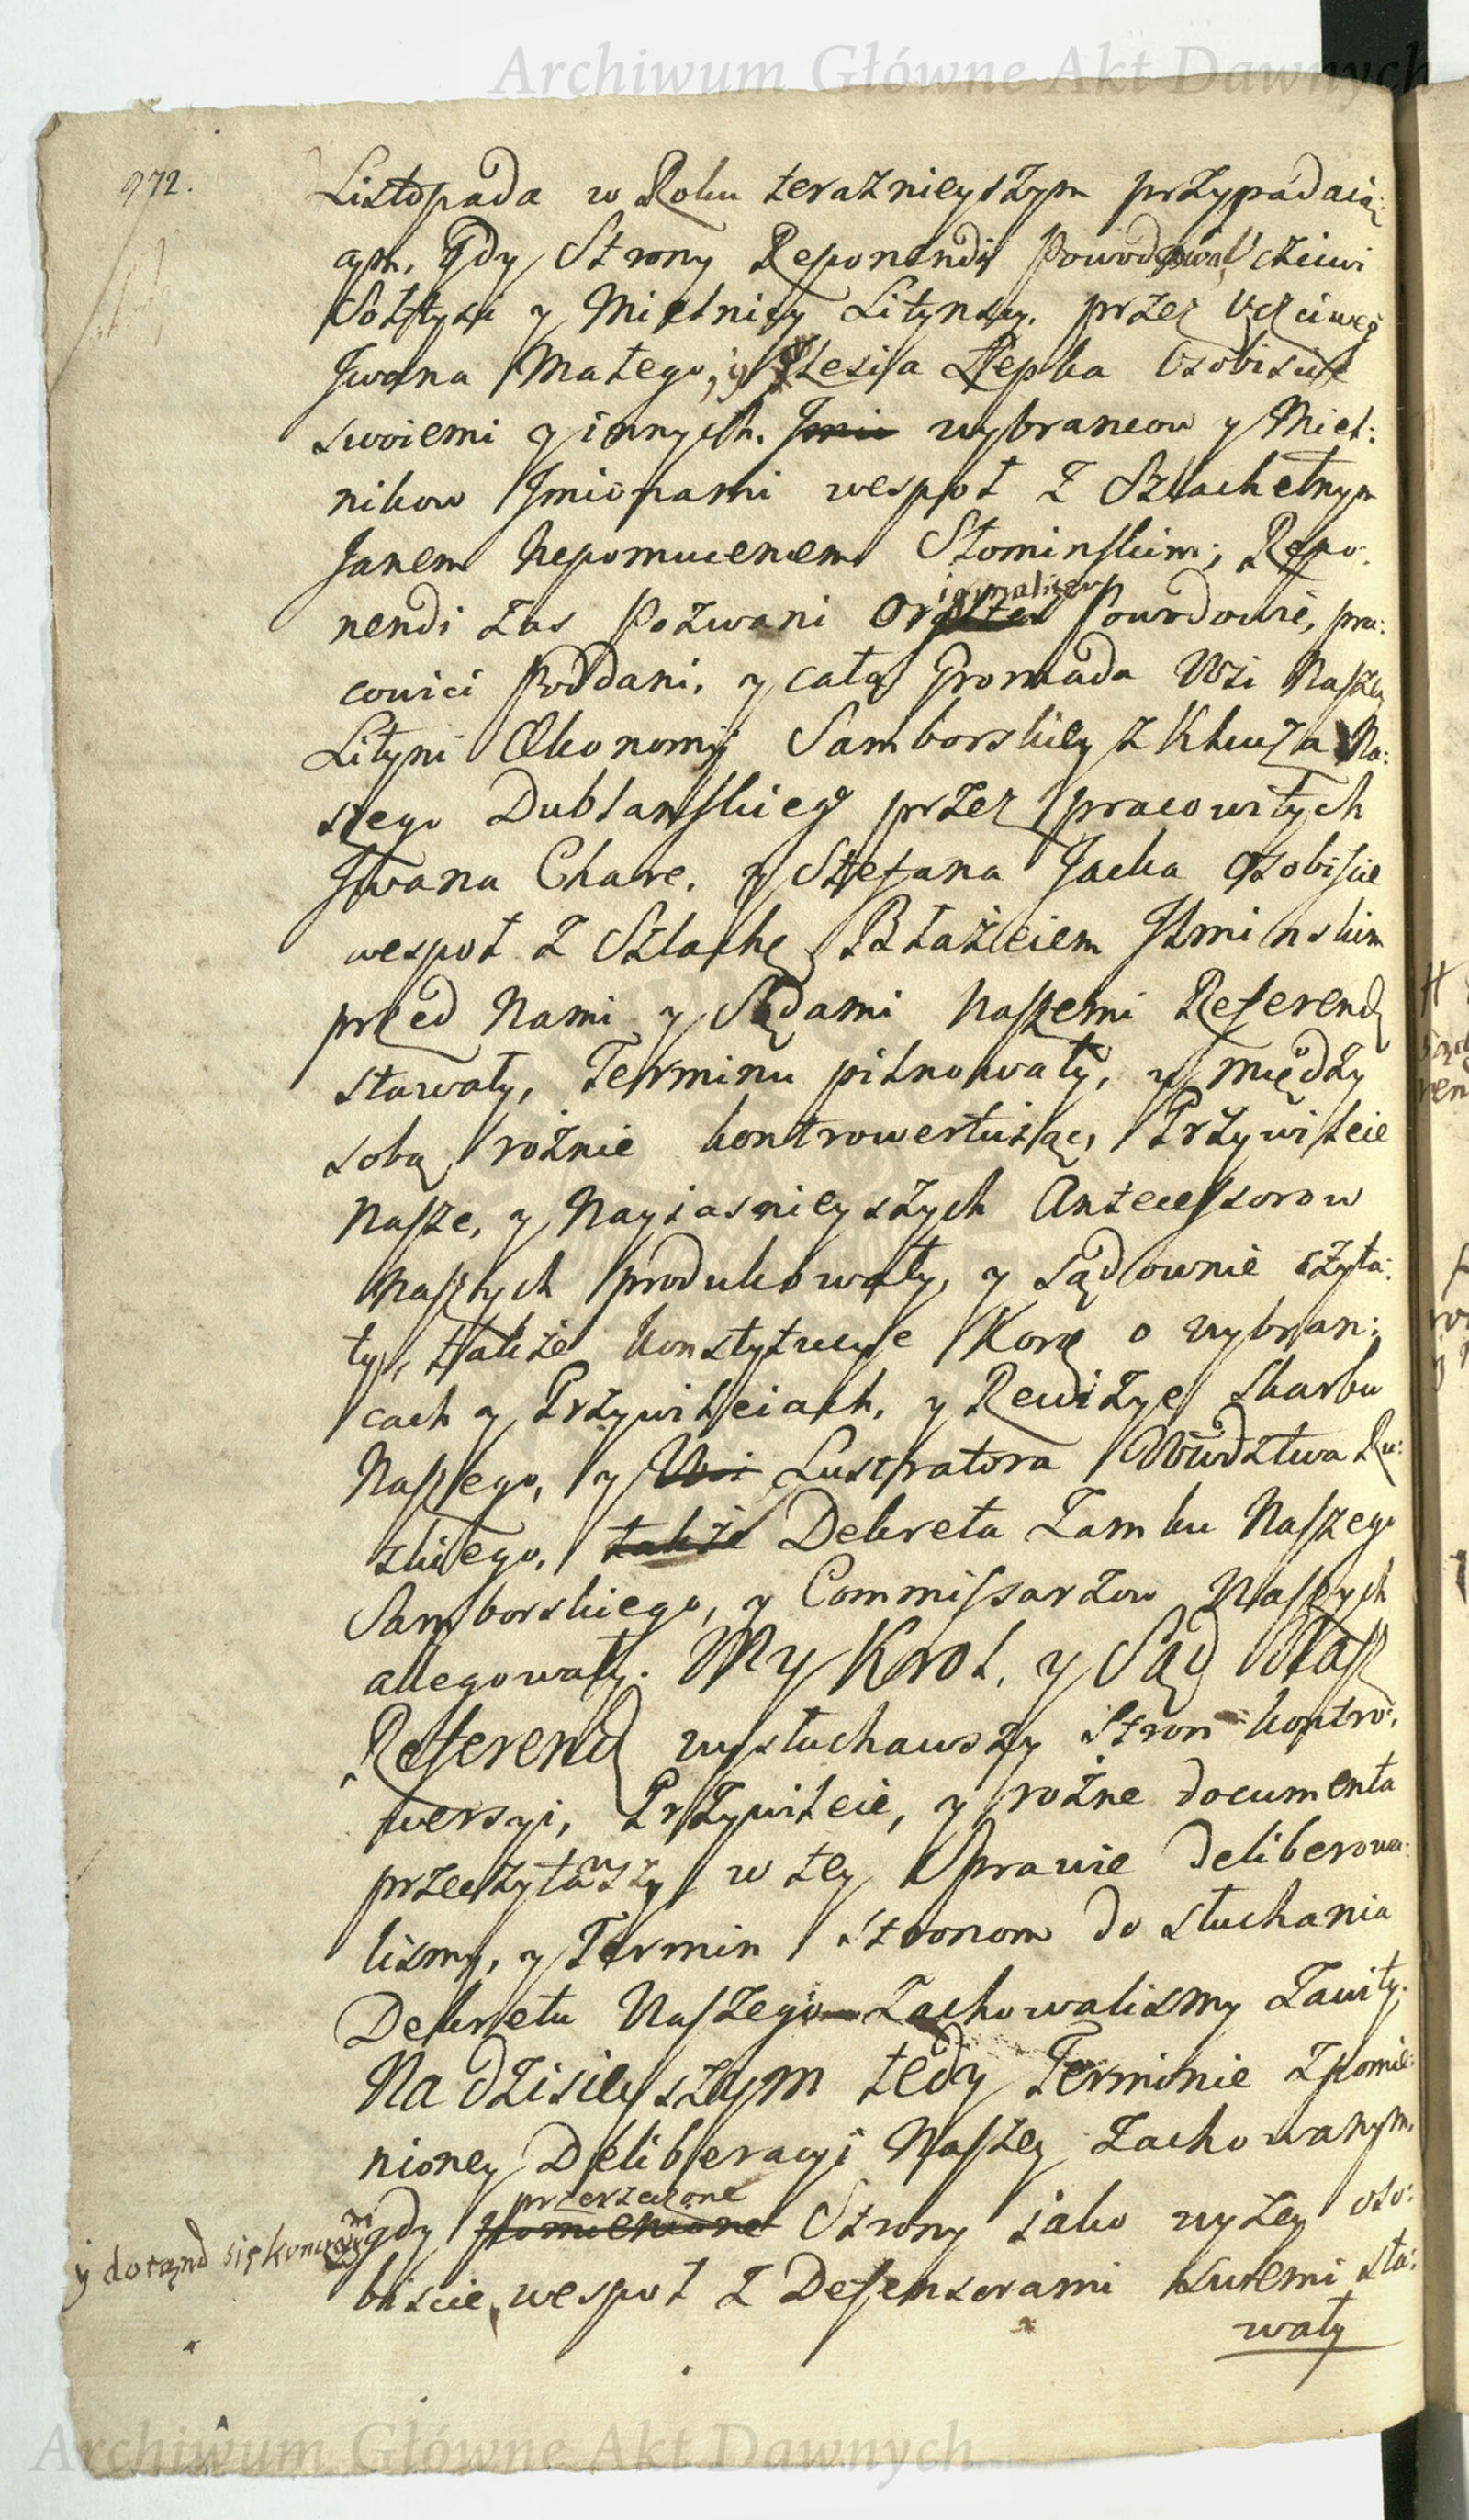 Archiwum Główne Akt Dawnych
972.
Listopada w Roku teraznieyszym przypadaią:
cym. gdy Strony Reponendi Powodowie Uczciwi
Sołtysi y Mielnicy Lityńscy. przez Uczciwego
Iwana Małego, y Olesia Repka Osobiscie
swoiemi y innych. Imie wybrancow y Miel:
nikow Imionami wespoł z Szlachetnym
Janem Nepomucenem Słominskim; Repo:
nendi zas Pozwani Powodowie, pra:
cowici Poddani, y cała Gromada Wsi Naszey
Lityni Œkonomij Samborskiey z Klucza Na:
szego Dublanskiego przez pracowitych
Iwana Chare. y Stefana Jacka Osobiscie
wespoł z Szlachę Błażeiem Ilminskim
przed Nami y Sądami Naszemi Referend
stawały, Terminu pilnowały, y między
sobą rożnie kontrowertuiąc, Przywileie
Nasze, y Nayiasnieyszych Antecessorow
Naszych produkowały, y sądownie czyta:
ły, także konstytucye Korę o wybran:
cach y Przywileiach, y Rewizye Skarbu
Naszego, y Wsi Lustratora Wwdztwa Ru:
skiego, także Dekreta Zamku Naszego
Samborskiego, y Commissarzow Naszych
allegowały. My Krol, y Sąd Nasz
Referend wysłuchawszy Stron kontro:
wersyi, Przywileie, y rożne documenta
przeczytawszy w tey Sprawie deliberowa:
lismy, y Termin Stronom do słuchania
Dekretu Naszego Zachowalismy Zawity.
Na dzisieyszym tedy Terminie z pomie:
nioney Deliberacyi Naszey Zachowanym,
przerzeczone
y dotąnd się
gdy pomienione Strony iako wyżey oso:
biscie, wespoł z Defensorami swemi sta:
wały
Archiwum Główne Akt Dawnych